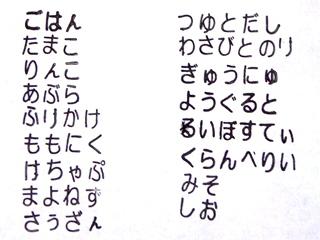 ごはん
たまこ
りんこ
あぶら
ふりかけ
ももにく
けちゃぷ
まよねず
さうざん
つゆとだし
わさびとのり
ぎゅうにゅ
ようぐると
るいぼすてぃ
くらんべりい
みそ
しお